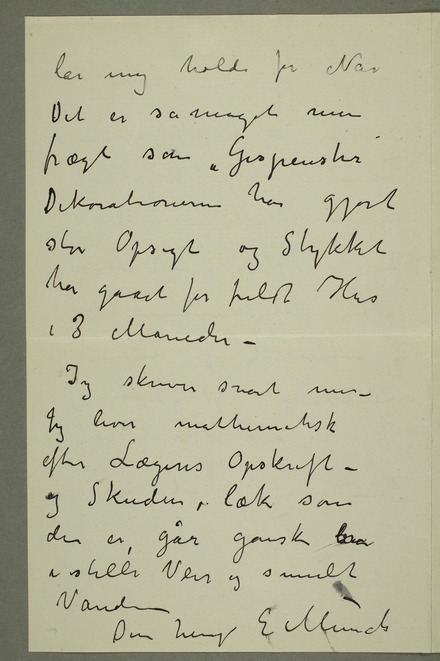 lar mig holde for Nar
Det er saameget mer
frægt som „Gespenster“
Dekorationerne har gjort
stor Opsigt og Stykket
har gaaet for fuldt Hus
i 3 Maaneder –
Jeg skriver snart mer –
Jeg lever mathematisk
efter Lægens Opskrift –
og Skuden, læk som
den er, går ganske bra
i stille Veir og smult
Vande
Din heng E Munch